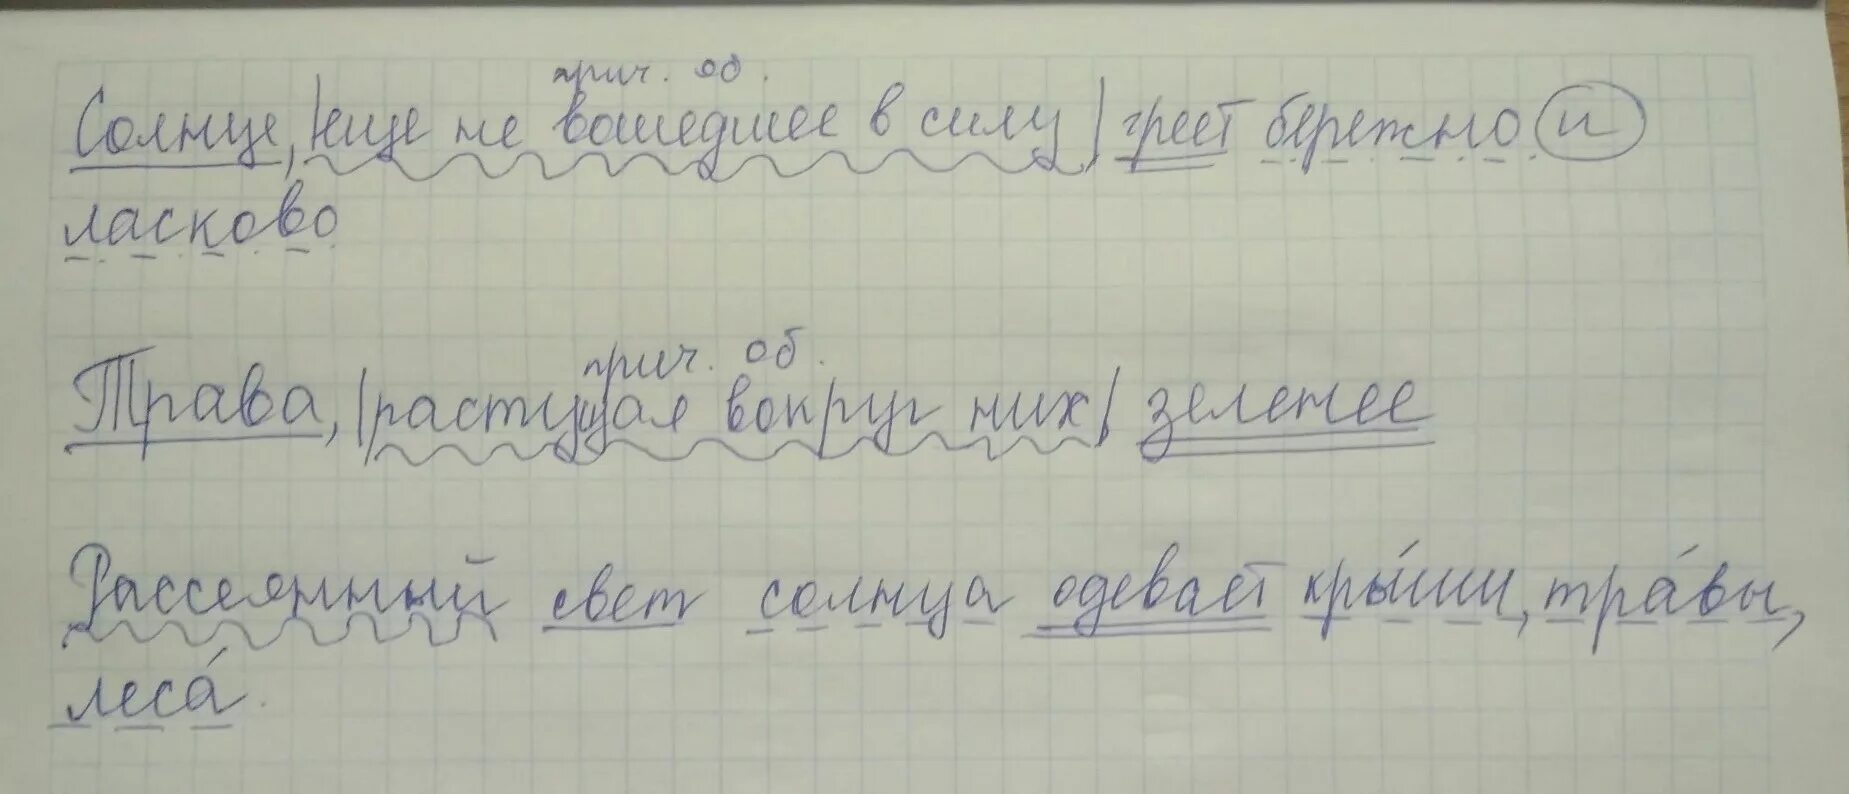 прич. об.
Солнце, |еще не вошедшее в силу| греет бережно и
ласково
прич. об.
Трава, |растущая вокруг них| зеленее
Рассеянный свет солнца одевает кры́ши, тра́вы,
леса́.